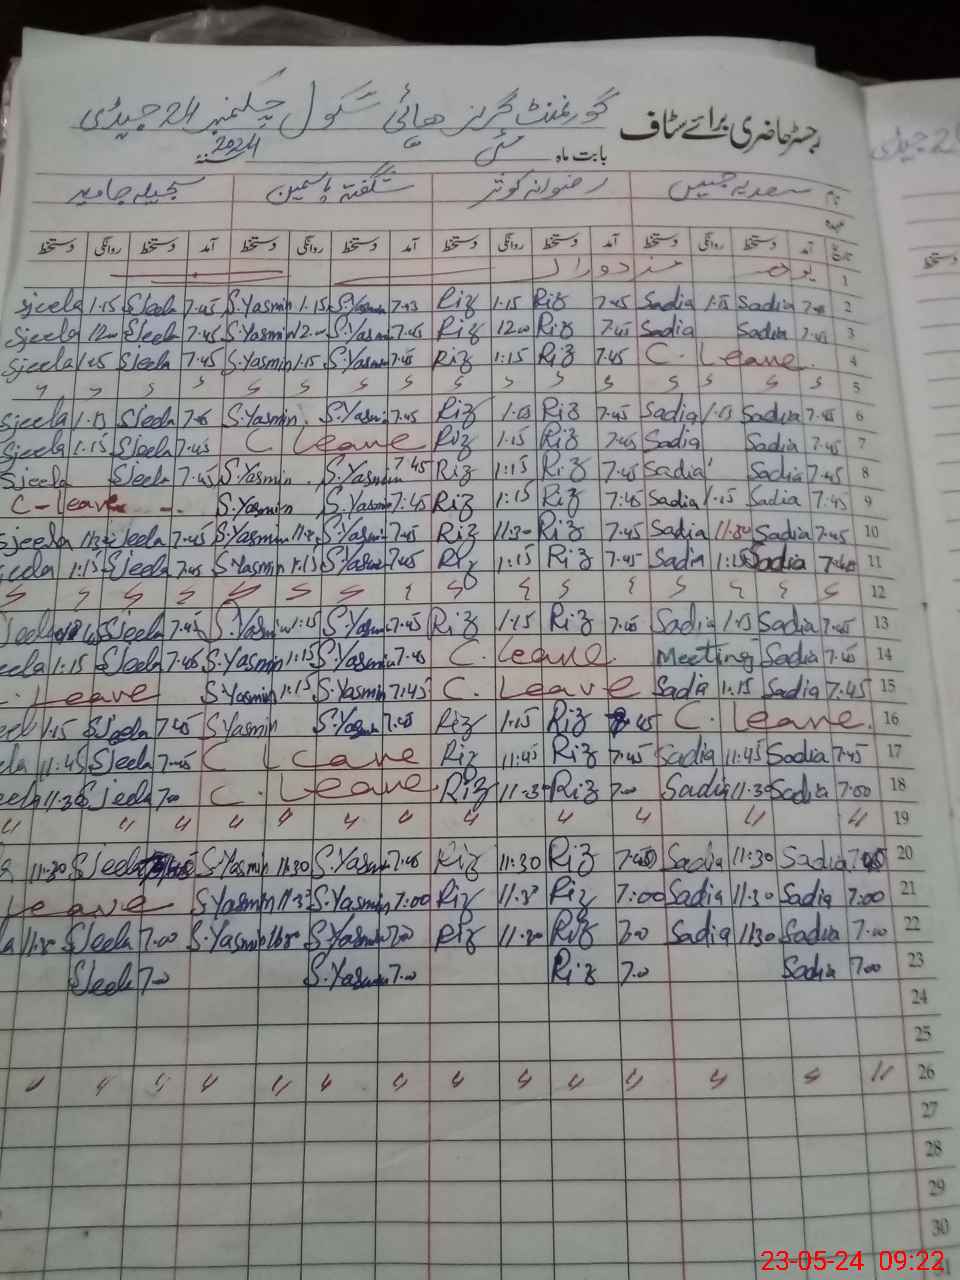 رجسٹر حاضری برائے سٹاف گورنمنٹ گرلز ہائی سکول چک نمبر 24 جیڈی
بابت ماہ مئی 2024
نام سعدیہ جبیں رضوانہ کوثر شگفتہ یاسمین سجیلہ جاوید
عہدہ
تاریخ آمد دستخط روانگی دستخط آمد دستخط روانگی دستخط آمد دستخط روانگی دستخط آمد دستخط روانگی دستخط
1 یوم مزدوراں
sjeela 1.15 SJeela 7.45 S.Yasmin 1.15 S.Yasmin 7.45 Riz 1.15 Riz 7.45 Sadia 1.15 Sadia 7.45 2
sjeela 12.00 SJeela 7.45 S.Yasmin 12.00 S.Yasmin 7.45 Riz 12.00 Riz 7.45 Sadia Sadia 7.45 3
sjeela 1.15 SJeela 7.45 S.Yasmin 1.15 S.Yasmin 7.45 Riz 1:15 Riz 7.45 C. Leave 4
5
sjeela 1.15 SJeela 7.45 S.Yasmin S.Yasmin 7.45 Riz 1.15 Riz 7.45 Sadia 1.15 Sadia 7.45 6
Sjeela 1.15 SJeela 7.45 C Leave Riz 1.15 Riz 7.45 Sadia Sadia 7.45 7
Sjeela SJeela 7.45 S.Yasmin S.Yasmin 7.45 Riz 1:15 Riz 7.45 Sadia Sadia 7.45 8
C-Leave S.Yasmin S.Yasmin 7.45 Riz 1:15 Riz 7.45 Sadia 1.15 Sadia 7.45 9
Sjeela SJeela 7.45 S.Yasmin S.Yasmin 7.45 Riz 11.30 Riz 7.45 Sadia 11.30 Sadia 7.45 10
1:15 SJeela 7.45 S.Yasmin 1:15 S.Yasmin 7.45 Riz 1:15 Riz 7.45 Sadia 1:15 Sadia 7.45 11
12
SJeela 7.45 S.Yasmin 1:15 S.Yasmin 7.45 Riz 1.15 Riz 7.45 Sadia 1.15 Sadia 7.45 13
1:15 SJeela 7.45 S.Yasmin 1:15 S.Yasmin 7.45 C. Leave Meeting Sadia 7.45 14
Leave S.Yasmin 1:15 S.Yasmin 7.45 C. Leave Sadia 1.15 Sadia 7.45 15
1.15 SJeela 7.45 S.Yasmin S.Yasmin 7.45 Riz 1.15 Riz 7.45 C. Leave. 16
11:45 SJeela 7.45 C Leave Riz 11:45 Riz 7.45 Sadia 11:45 Sadia 7.45 17
11.30 SJeela 7.00 C. Leave Riz 11.30 Riz 7.00 Sadia 11.30 Sadia 7.00 18
19
11:30 SJeela S.Yasmin 11:30 S.Yasmin 7.45 Riz 11:30 Riz Sadia 11:30 Sadia 20
Leave S.Yasmin 11.30 S.Yasmin 7:00 Riz 11.30 Riz 7:00 Sadia 11.30 Sadia 7.00 21
11.30 SJeela 7.00 S.Yasmin 11.30 S.Yasmin 7.00 Riz 11.30 Riz 7.00 Sadia 11.30 Sadia 7.00 22
SJeela 7.00 S.Yasmin 7.00 Riz 7.00 Sadia 7.00 23
24
25
26
27
28
29
30
31
23-05-24 09:22